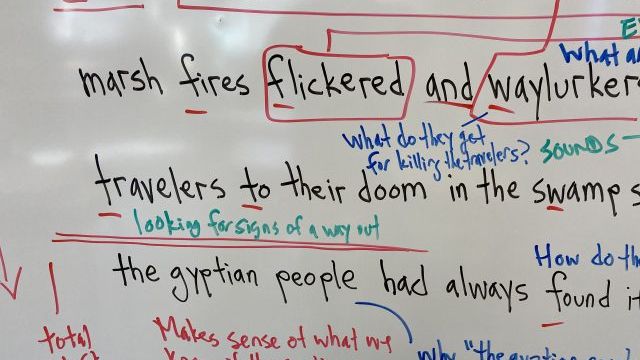 E
What a
marsh fires flickered and waylurkers
What do they get
for killing the travelers?
SOUNDS
travelers to their doom in the swamp s
looking for signs of a way out
How do th
the gyptian people had always found it
total
Makes sense of what we
why "the gyptian